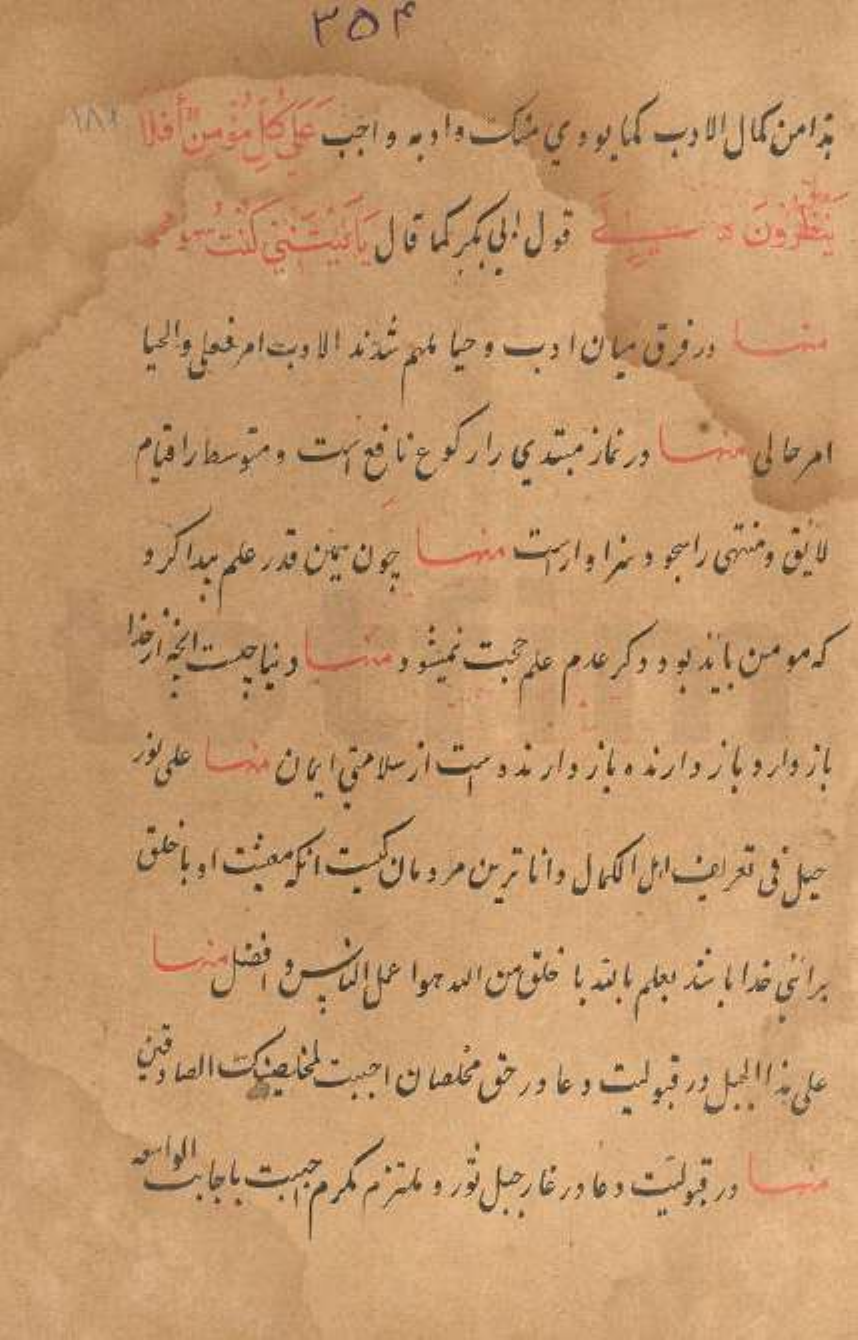 ۳۵۴
۱۸۲
هذا من کمال الادب کما یودی منک وادبه واجب عَلَی کُلِّ مُؤمِنٍ أَفَلَا
یَنظُرُونَ قول ابی بکر کما قال یَا لَیتَنِی کُنتُ سهو محمد
منها در فرق میان ادب و حیا ملهم شدند الادب امر فعلی والحیا
امر حالی منها در نماز مبتدی را رکوع نافع است و متوسط را قیام
لایق و منتهی را سجود سزاوار است منها چون یمین قدر علم پیدا کرد
که مومن باید بود دکر عدم علم حجت نمیشود منها دنیا چیست انچه از خدا
باز دارد باز دارنده باز دارنده است از سلامتی ایمان منها علی نور
جبل فی تعریف اهل الکمال داناترین مردمان کیست انکه معیشت او با خلق
برائی خدا باشد بعلم بالله با خلق من الله هوا عمل الناس و افضل منها
علی هذا الجبل در قبولیت دعا در حق مخلصان اجیبت لمخلصینک الصادقین
منها در قبولیت دعا در غار جبل نور و ملتزم مکرم اجیبت باجابت الواسعه